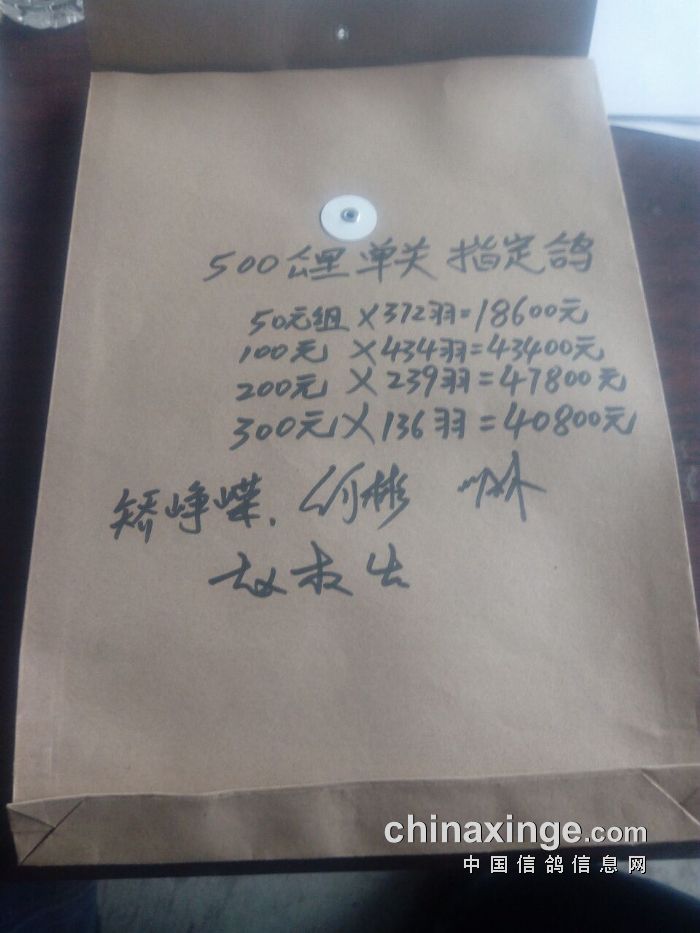 500公里单关指定鸽
50元组×372羽=18600元
100元×434羽=43400元
200元×239羽=47800元
300元×136羽=40800元
矫峥嵘. 何彬
chinaxinge.com
中国信鸽信息网